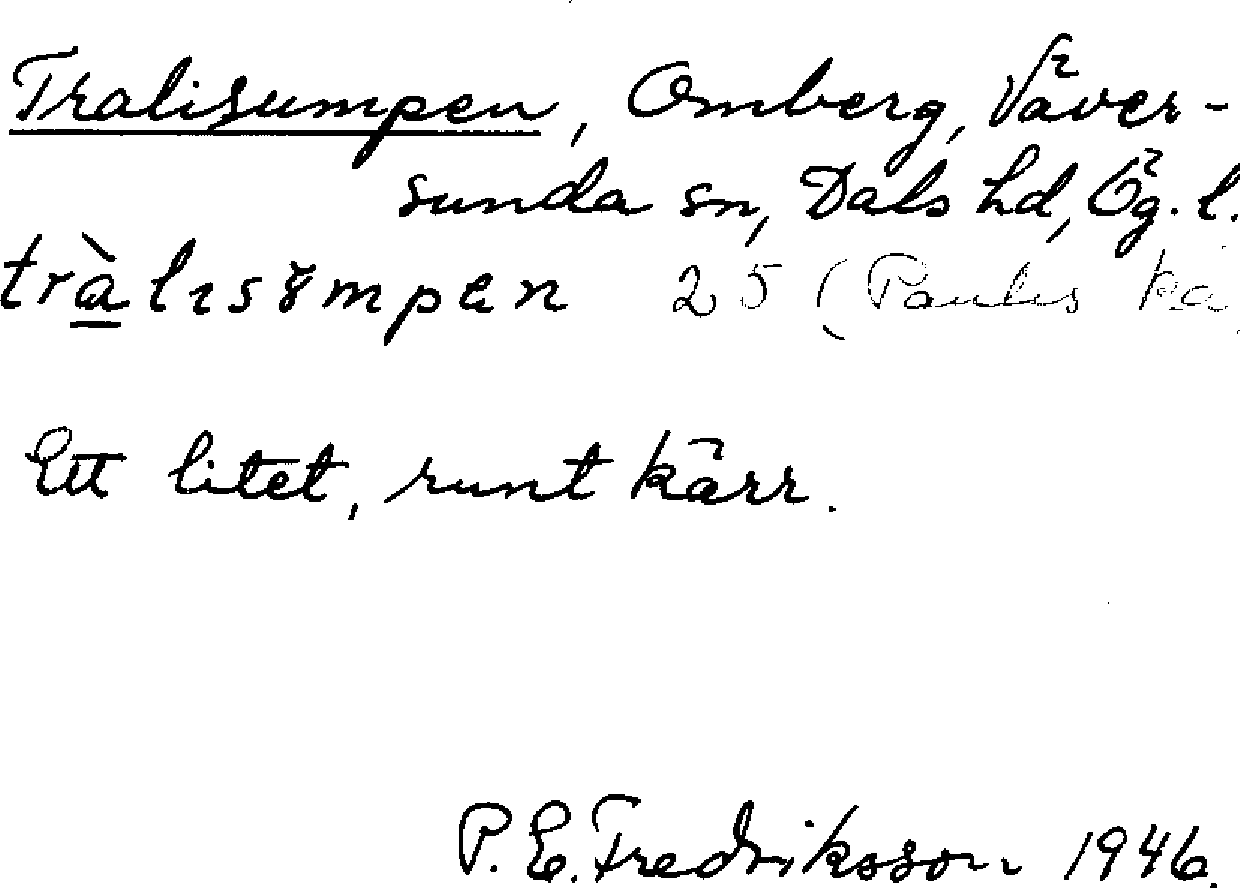 Tralisumpen, Omberg, Väver-
sunda sn, Dals hd, Ög. l.
tràlısɤmpen 25 (Paulis ka
Ett litet, runt kärr.
P. E. Fredriksson 1946.